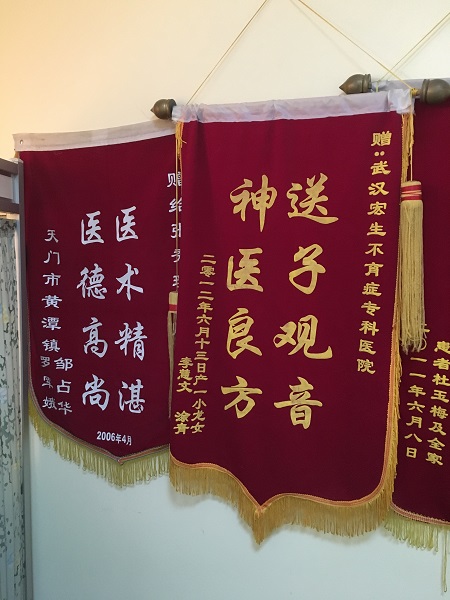 赠：武汉宏生不育症专科医院
送子观音
神医良方
二零一二年六月十三日产一小龙女
李慧文 涂青
赠给张
医术精湛
医德高尚
天门市黄潭镇
邹占华
罗 娥
2006年4月
患者杜玉梅及全家
一一年六月八日